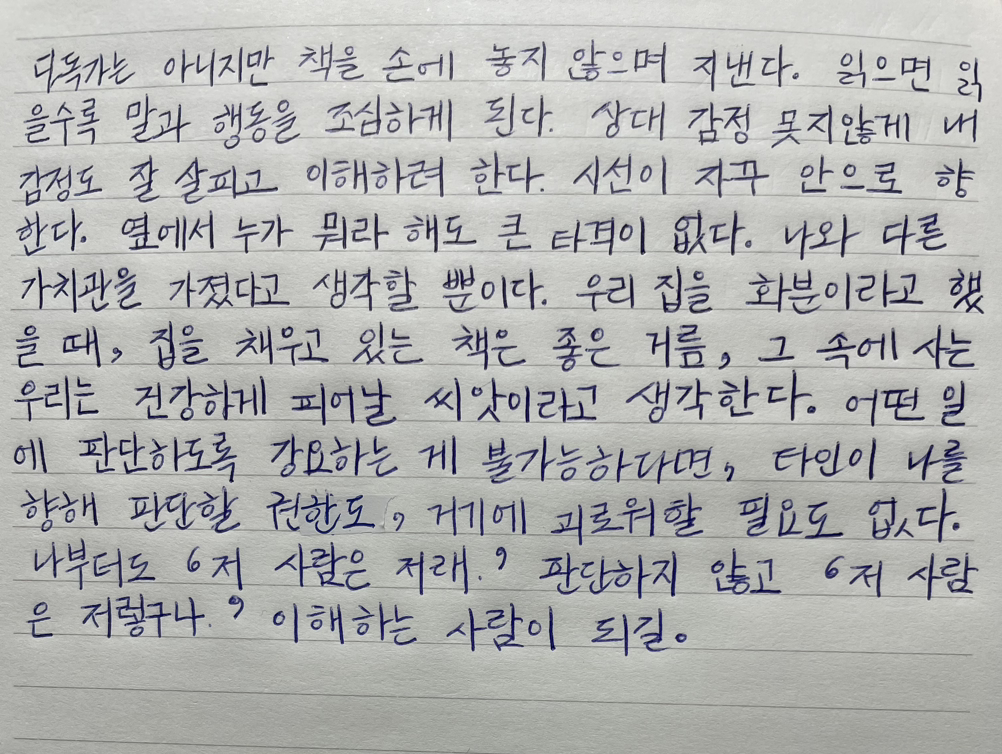 다독가는 아니지만 책을 손에 놓지 않으며 지낸다. 읽으면 읽
을수록 말과 행동을 조심하게 된다. 상대 감정 못지않게 내
감정도 잘 살피고 이해하려 한다. 시선이 자꾸 안으로 향
한다. 옆에서 누가 뭐라 해도 큰 타격이 없다. 나와 다른
가치관을 가졌다고 생각할 뿐이다. 우리 집을 화분이라고 했
을 때, 집을 채우고 있는 책은 좋은 거름, 그 속에 사는
우리는 건강하게 피어날 씨앗이라고 생각한다. 어떤 일
에 판단하도록 강요하는 게 불가능하다면, 타인이 나를
향해 판단할 권한도, 거기에 괴로워할 필요도 없다.
나부터도 ‘저 사람은 저래.’ 판단하지 않고 ‘저 사람
은 저렇구나.’ 이해하는 사람이 되길.